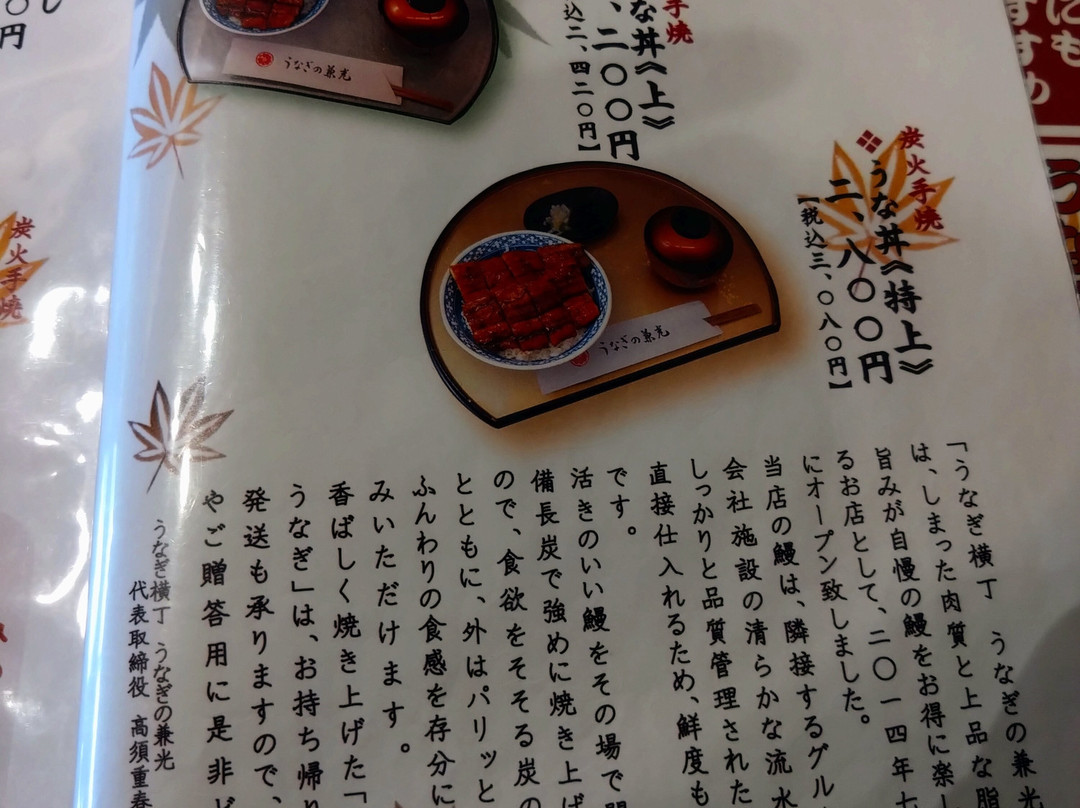 にも
すすめ
炭火手焼
うな丼《特上》
二、八〇〇円
【税込三、〇八〇円】
手焼
うな丼《上》
二、二〇〇円
込二、四二〇円】
うなぎの兼光
うなぎの兼光
「うなぎ横丁 うなぎの兼光
は、しまった肉質と上品な脂
旨みが自慢の鰻をお得に楽し
るお店として、二〇一四年七
にオープン致しました。
当店の鰻は、隣接するグル
会社施設の清らかな流水
しっかりと品質管理された
直接仕入れるため、鮮度も
です。
活きのいい鰻をその場で開
備長炭で強めに焼き上げ
ので、食欲をそそる炭の
とともに、外はパリッと
ふんわりの食感を存分に
みいただけます。
香ばしく焼き上げた「
うなぎ」は、お持ち帰り
発送も承りますので、
やご贈答用に是非ど
うなぎ横丁 うなぎの兼光
代表取締役 高須重春
円
炭火手焼